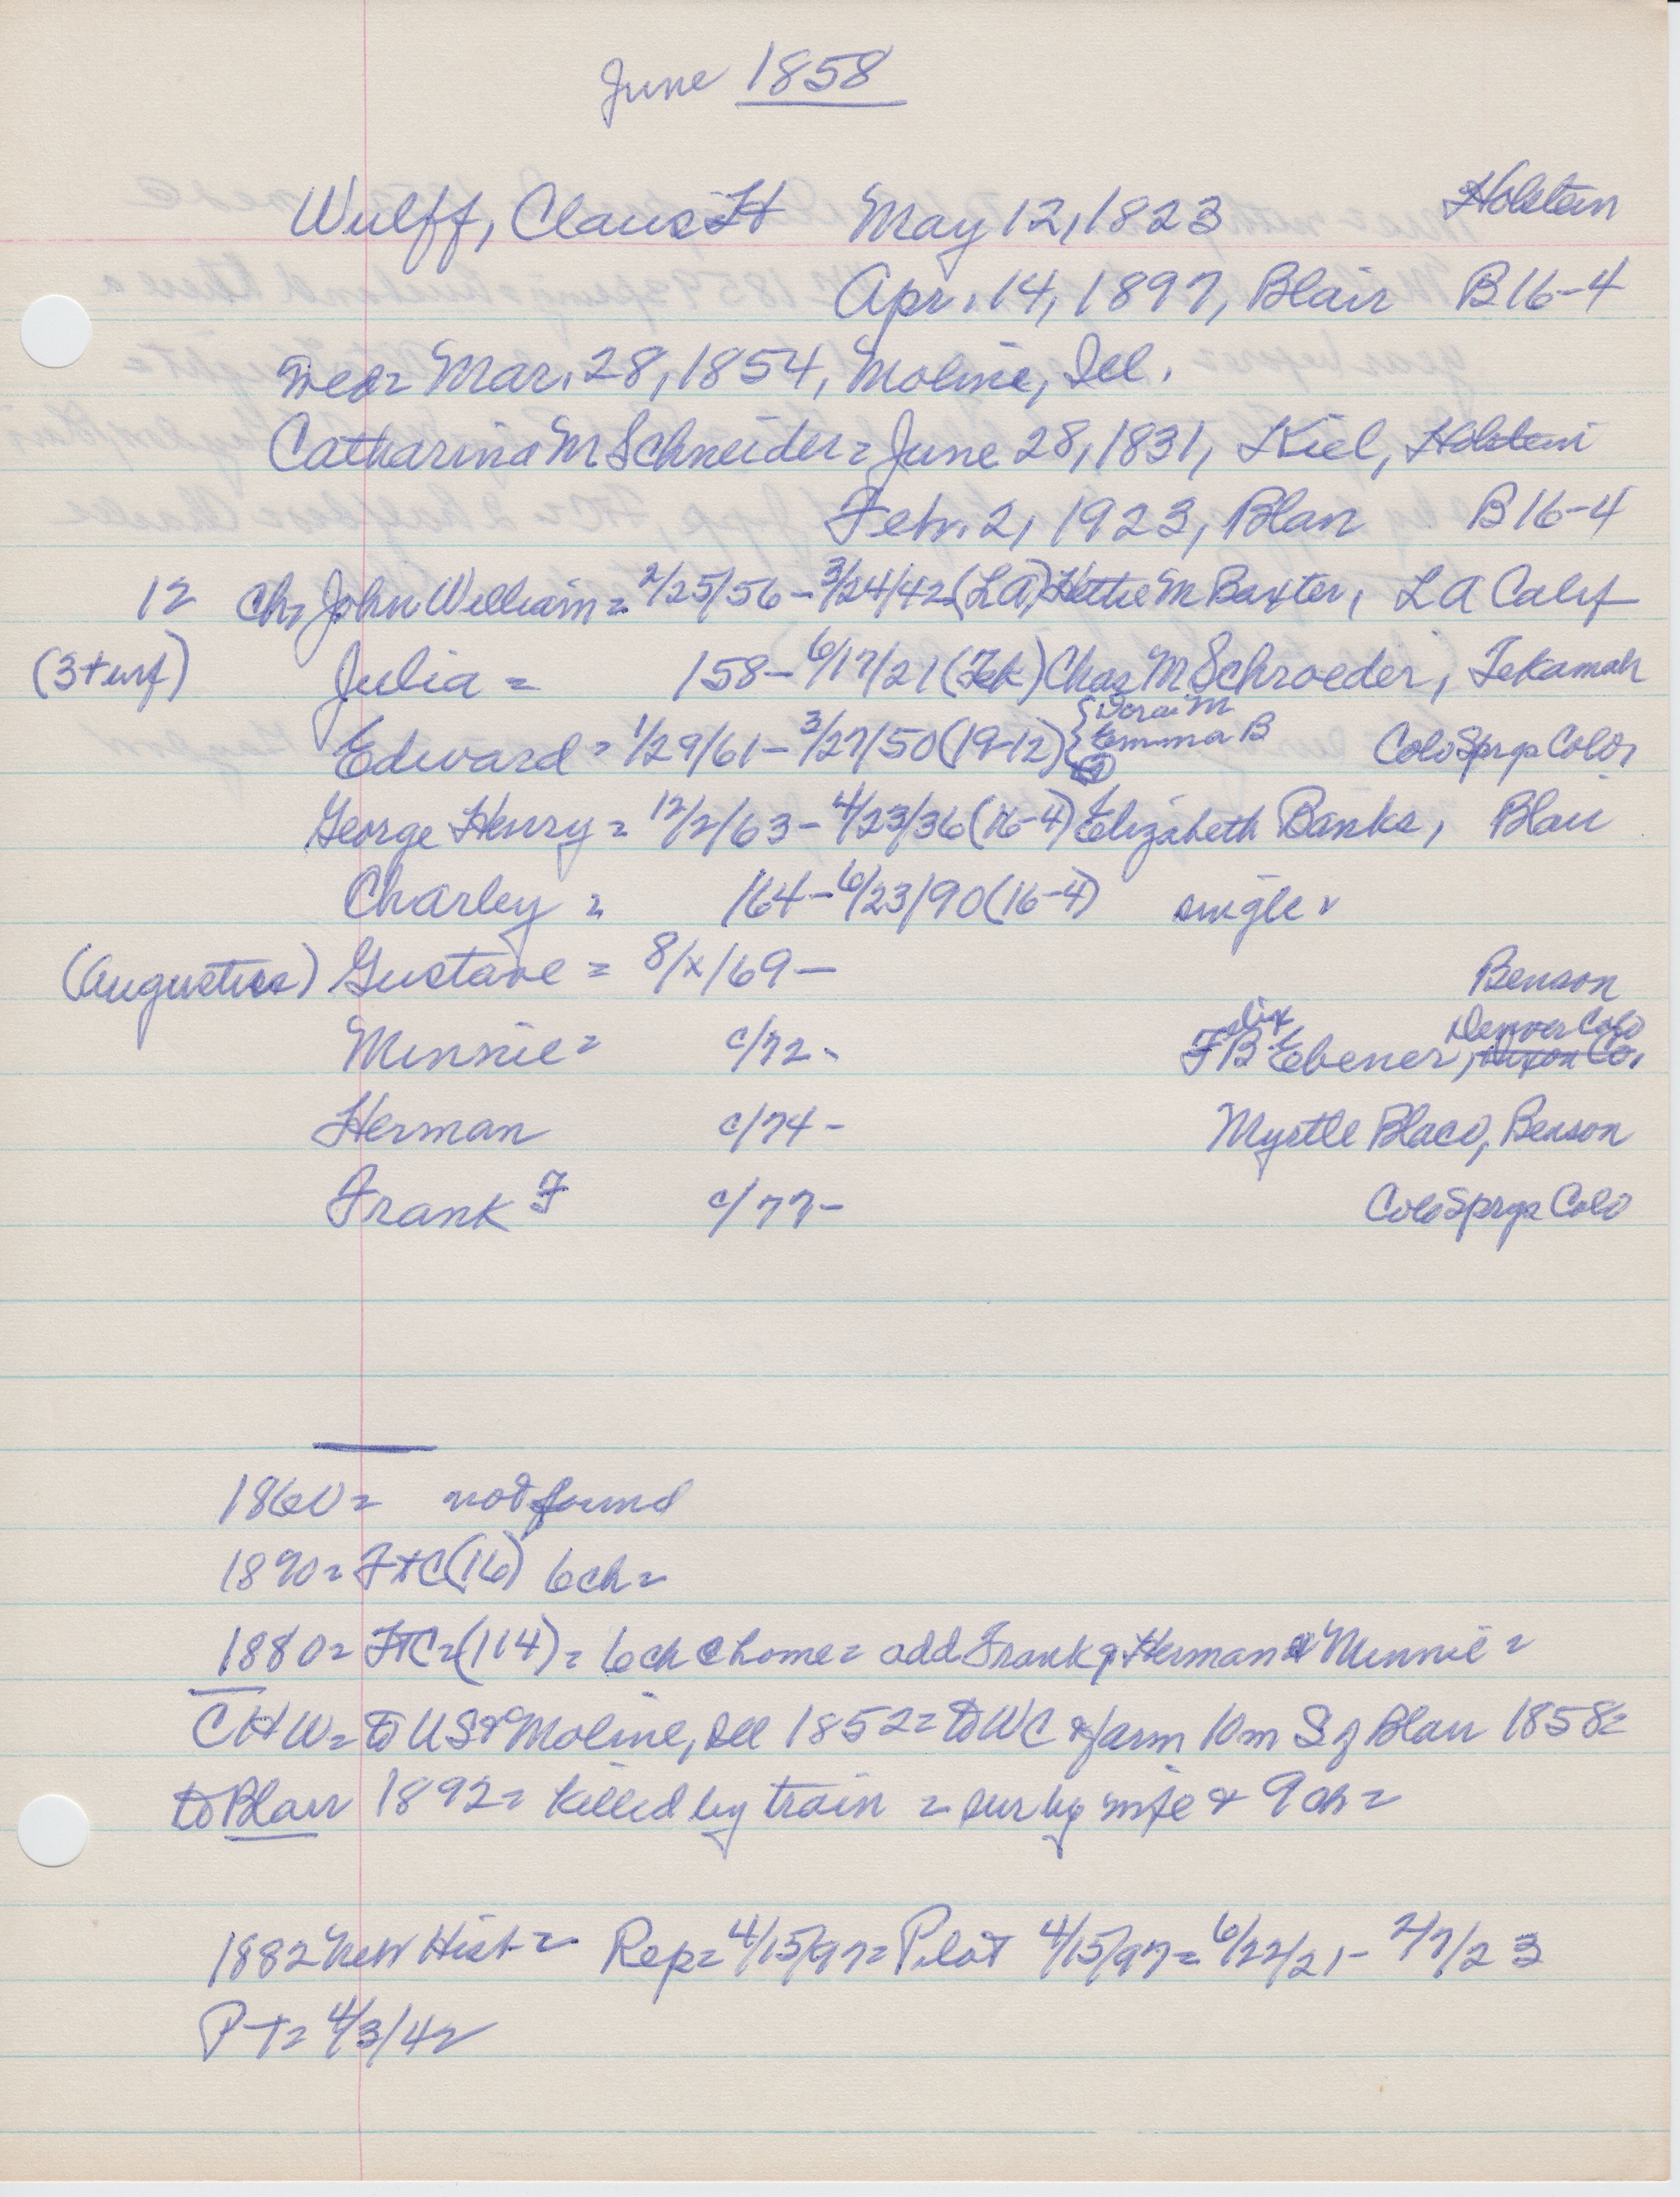 June 1858
Wulff, Claus H May 12, 1823 Holstein
Apr. 14, 1897, Blair B16-4
med= Mar. 28, 1854, Moline, Ill.
Catharina M Schneider = June 28, 1831, Kiel, Holstein
Feb. 2, 1923, Blair B16-4
12 Ch, John William = 2/25/56 - 3/24/42 (LA) Hettie M Baxter, LA Calif
(3+inf) Julia = /58 - 6/17/21 (Tek) Chas M Schroeder, Tekamah
Edward = 1/29/61 - 3/27/50 (19-12) { Dora M
{ Emma B Colo Sprgs Colo,
George Henry = 12/2/63 - 4/23/36 (16-4) Elizabeth Banks, Blair
Charley = /64 - 6/23/90 (16-4) single
(Augustus) Gustave = 8/x/69 - Benson
Minnie = c/72 - F B Ebener, Denver Colo
Herman c/74 - Myrtle Blaco, Benson
Frank F c/77 - Colo Sprgs Colo
1860 = not found
1890 = FtC (16) 6 ch =
1880 = FTC = (114) = 6 ch @ home = add Frank & Herman & Minnie =
CHW = to US & Moline, Ill 1852 = to WC & farm 10m S of Blair 1858 =
to Blair 1892 = killed by train = sur by wife & 9 ch =
1882 Neb Hist = Rep = 4/15/97 = Pilot 4/15/97 = 6/22/21 - 2/7/23
P-T = 4/3/42